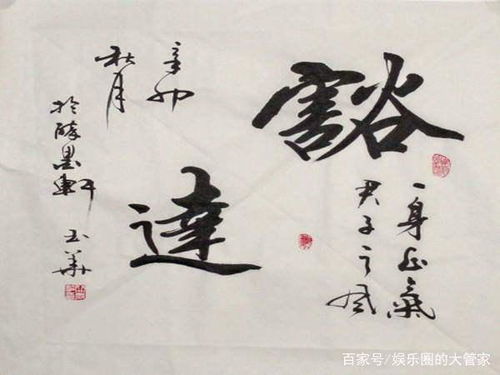 豁
達
一身正氣
君子之风
辛卯
秋月
於醉墨軒
玉華
百家号/娱乐圈的大管家